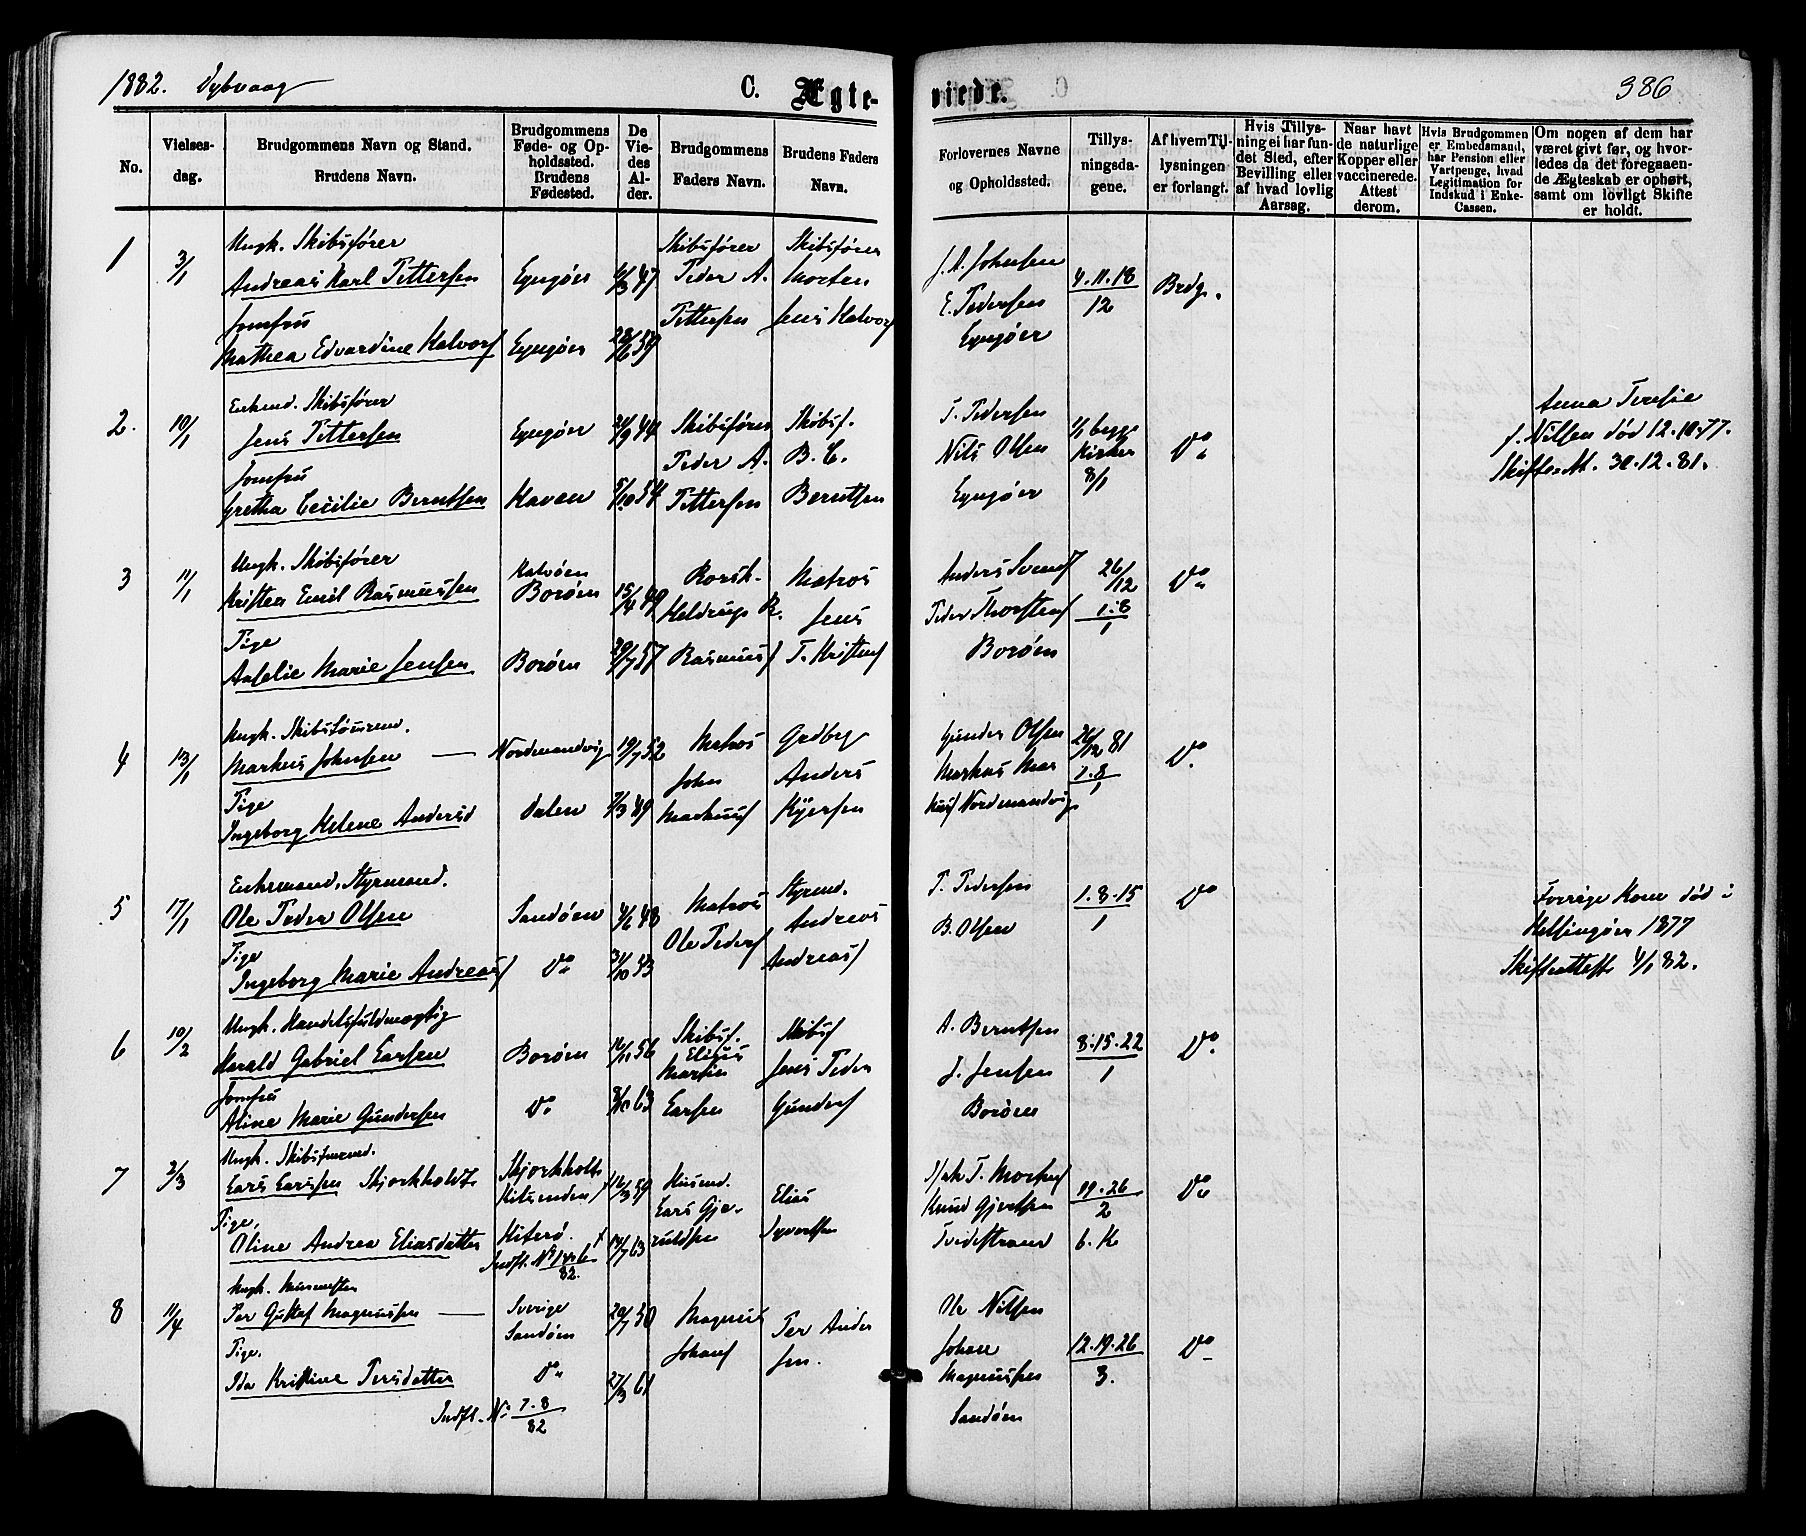 1882. Dybvaag
C. Ægte-
viede.
386
No.
Vielses-
dag.
Brudgommens Navn og Stand.
Brudens Navn.
Brudgommens
Føde- og Op-
holdssted.
Brudens
Fødested.
De
Vie-
des
Al-
der.
Brudgommens
Faders Navn.
Brudens Faders
Navn.
Forlovernes Navne
og Opholdssted.
Tillys-
ningsda-
gene.
Af hvem Til-
lysningen
er forlangt.
Hvis Tillys-
ning ei har fun-
det Sted, efter
Bevilling eller
af hvad lovlig
Aarsag.
Naar havt
de naturlige
Kopper eller
vaccinerede.
Attest
derom.
Hvis Brudgommen
er Embedsmand,
har Pension eller
Vartpenge, hvad
Legitimation for
Indskud i Enke-
Cassen.
Om nogen af dem har
været givt før, og hvor-
ledes da det foregaaen-
de Ægteskab er ophørt,
samt om lovligt Skifte
er holdt.
1
3/1
Ungk. Skibsfører
Andreas Karl Pettersen
Jomfru
Mathea Edvardine Halvors
Lyngøer
Lyngøer
4/3 47
28/6 59
Skibsfører
Peder A.
Pettersen
Skibsfører
Morten
Jens Halvors
J. A. Johnsen
E. Pedersen
Lyngøer
4.11.18
12
Brdg.
2.
10/1
Enkem. Skibsfører
Jens Pettersen
Jomfru
Grethe Cecilie Berntsen
Lyngøer
Haven
24/9 44
5/10 54
Skibsfører
Peder A.
Pettersen
Skibsf.
B. C.
Berntsen
T. Pedersen
Nils Olsen
Lyngøer
1/1 begge
Kirker
8/1
Do
Anna Teresie
f. Nilsen død 12.10.77.
Skifte At. 30.12.81.
3
11/1
Ungk. Skibsfører
Kristen Emil Rasmussen
Pige
Aaselie Marie Jensen
Kalvøen
Borøen
Borøen
15/4 49
29/7 57
Heldrup R.
Rasmuss
Matros
Jens
T. Kristens
Anders Svends
Peder Thorstens
Borøen
26/12
1.8
1
Do
4
13/1
Markus Johnsen
Pige
Ingeborg Helene Andersd
Nordmandvig
Dalen
19/7 52
7/3 49
Matros
John
Markuss
Grdbr
Anders
Kjersen
Gunder Olsen
Markus Mar
kuss Nordmandvig
26/12 81
1.8
1
Do
5
17/1
Enkemand. Styrmand.
Ole Peder Olsen
Pige
Ingeborg Marie Andreass
Sandøen
Do
4/6 48
31/10 53
Matros
Ole Peders
Styrmd.
Andreas
Andreass
T. Pedersen
B. Olsen
1.8.15
1
Do
Forrige Kone død i
Helsingøer 1877
Skifteattest 4/1 82.
6
10/2
Ungk. Handelsfuldmægtig
Harald Gabriel Larsen
Jomfru
Aline Marie Gundersen
Borøen
Do
14/11 56
9/10 63
Skibsf.
Elias
Martin
Larsen
Skibsf
Jens Peder
Gunders
A. Berntsen
J. Jensen
Borøen
8.15.22
1
Do
7
2/3
Lars Larssen Skjorkholdt
Pige,
Oline Andrea Eliasdatter
Skjorkholt
Hiterø.
Indfl. No 1 & 6
82.
16/3 59
14/7 63
Husmd.
Lars Gje-
ruldsen
Elias
Syvertsen
Knud Gjertsen
Tvedestrand
19.26
2
b. K
Do
8
11/4
Per Gustaf Magnussen
Pige.
Ida Kristine Persdatter
Sverige
Sandøen
Do
Indfl. No 7.8
82
29/7 50
27/3 61
Magnus
Johans
Per Ander
sen.
Ole Nilsen
Johan
Magnussen
Sandøen
12.19.26
3.
Do